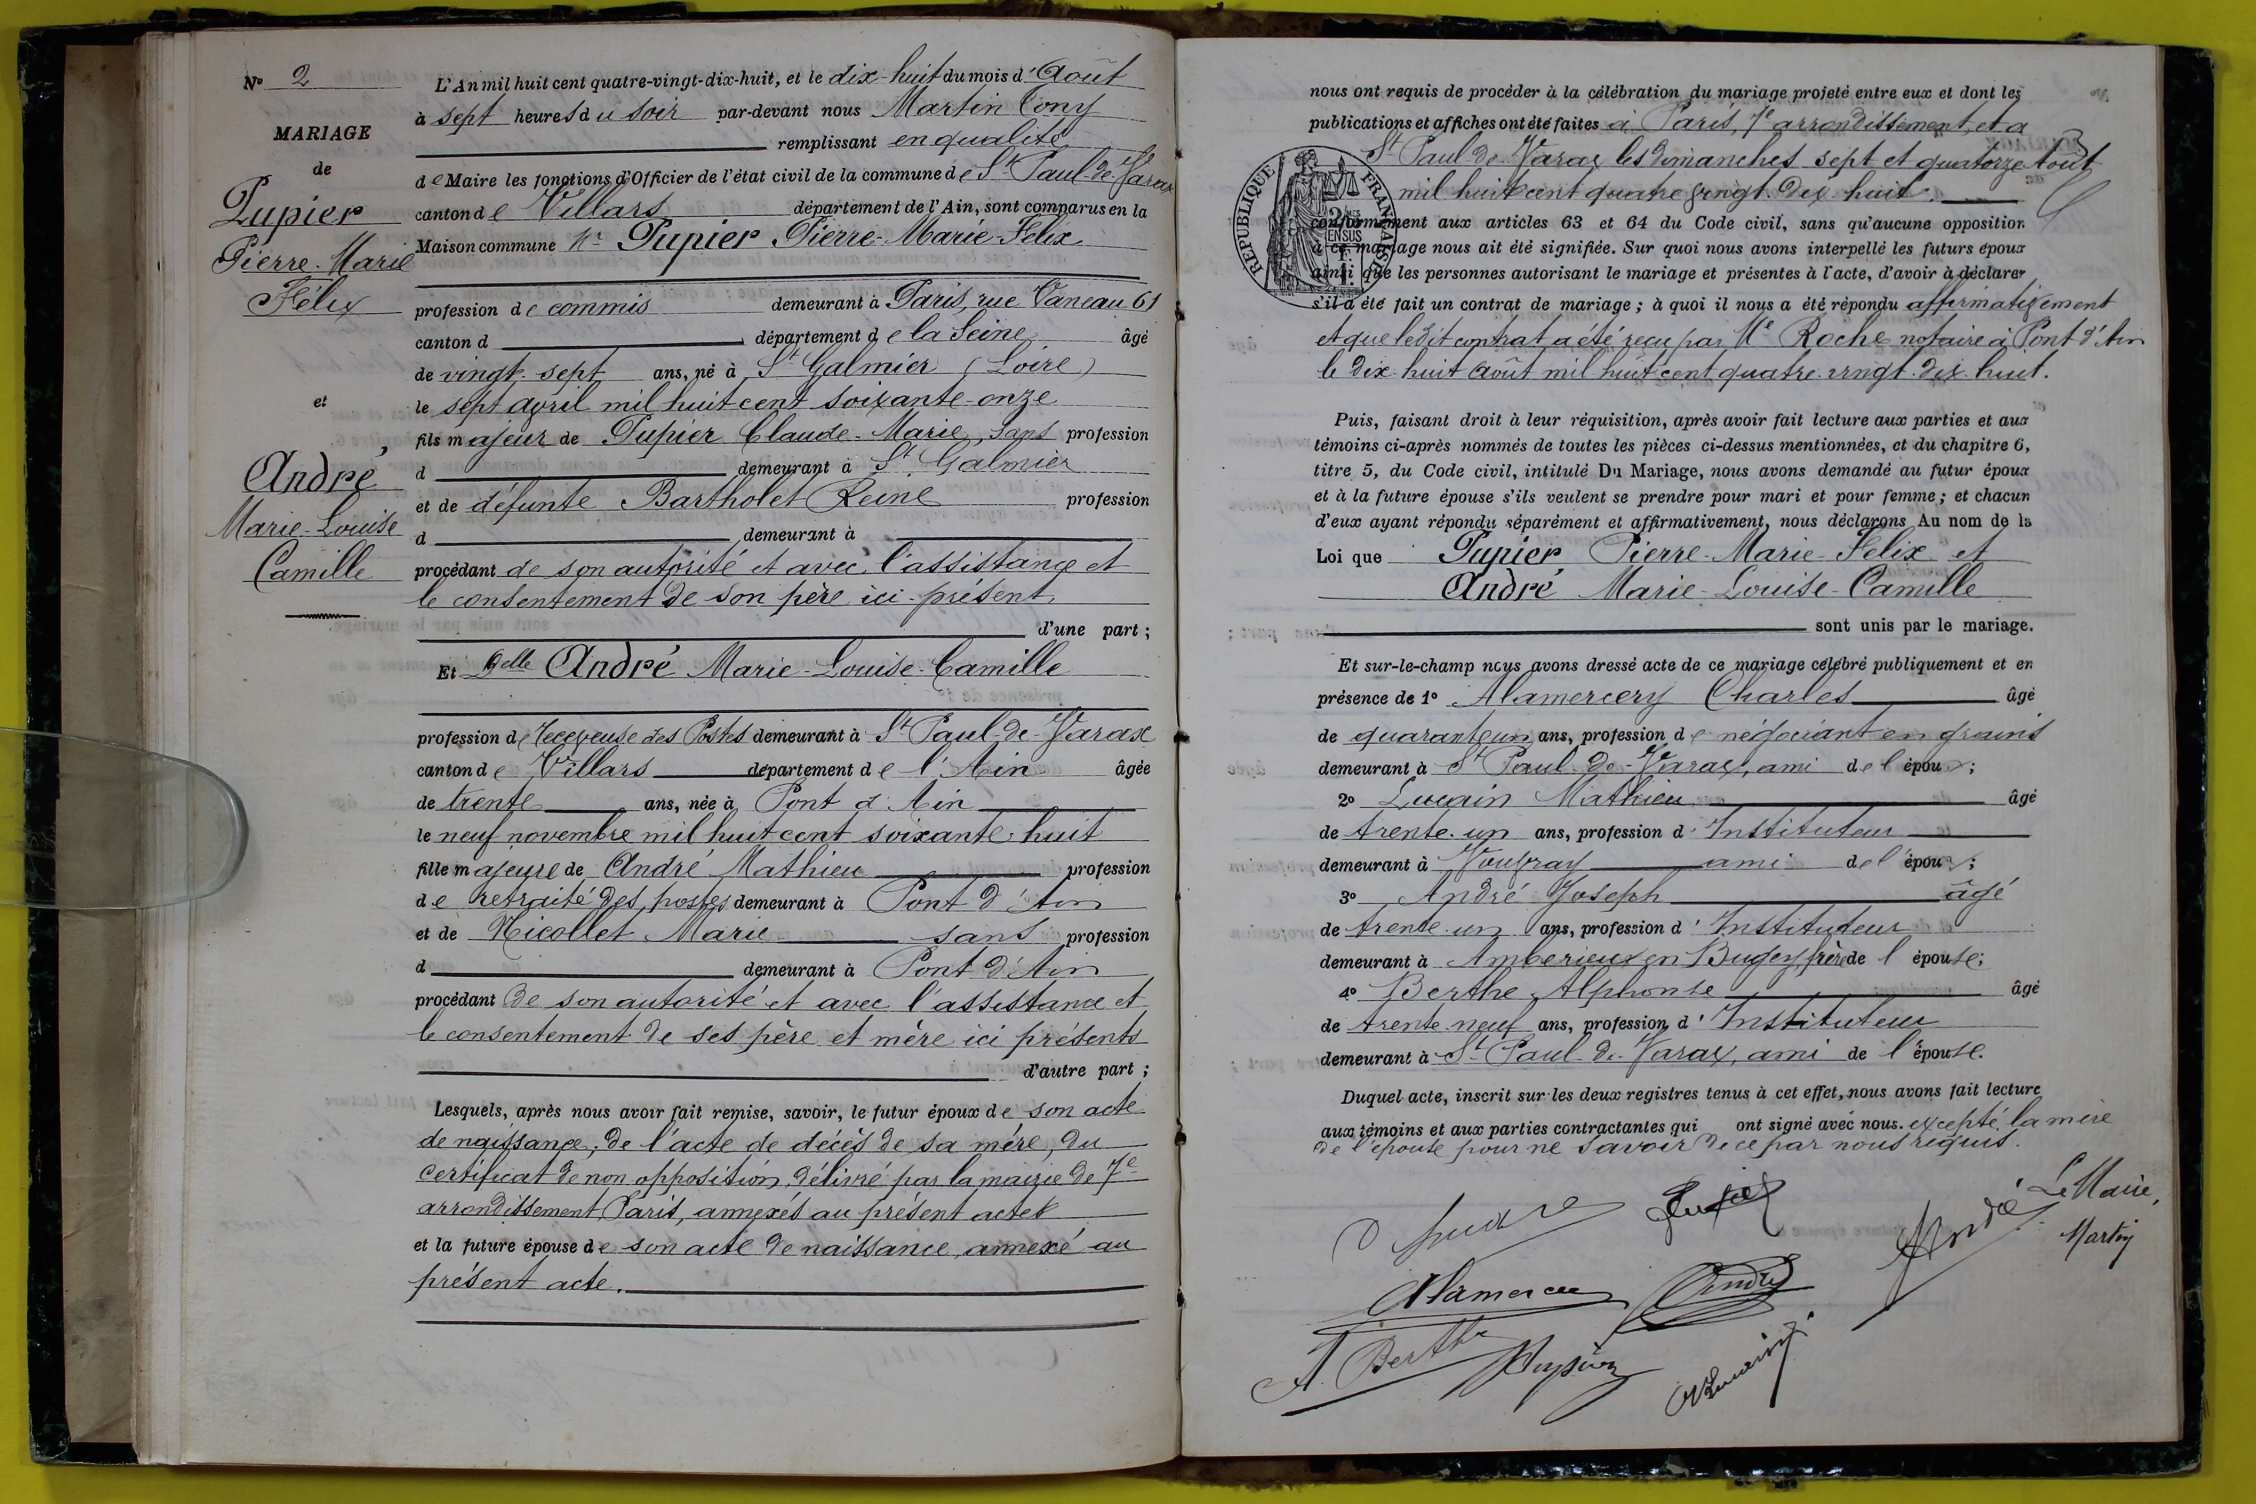 N° 2
MARIAGE
de
Pupier
Pierre-Marie
Félix
et
André
Marie-Louise
Camille
L'An mil huit cent quatre-vingt-dix-huit, et le dix-huit du mois d'Août
à sept heures du soir par-devant nous Martin Tony
remplissant en qualité
de Maire les fonctions d'Officier de l'état civil de la commune de St Paul-de-Varax
canton de Villars département de l'Ain, sont comparus en la
Maison commune Mr Pupier Pierre-Marie-Félix
profession de commis demeurant à Paris, rue Vaneau 61
canton d département de la Seine âgé
de vingt-sept ans, né à St Galmier (Loire)
le sept avril mil huit cent soixante-onze
fils majeur de Pupier Claude-Marie, sans profession
d demeurant à St Galmier
et de défunte Bartholet Reine profession
d demeurant à
procédant de son autorité et avec l'assistance et
le consentement de son père ici présent
d'une part ;
Et Delle André Marie-Louise-Camille
profession de Receveuse des Postes demeurant à St Paul-de-Varax
canton de Villars département de l'Ain âgée
de trente ans, née à Pont d'Ain
le neuf novembre mil huit cent soixante-huit
fille majeure de André Mathieu profession
de retraité des postes demeurant à Pont d'Ain
et de Nicollet Marie sans profession
d demeurant à Pont d'Ain
procédant de son autorité et avec l'assistance et
le consentement de ses père et mère ici présents
d'autre part ;
Lesquels, après nous avoir fait remise, savoir, le futur époux de son acte
de naissance, de l'acte de décès de sa mère, du
certificat de non opposition, délivré par la mairie de 7e
arrondissement, Paris, annexés au présent acte
et la future épouse de son acte de naissance, annexé au
présent acte.
nous ont requis de procéder à la célébration du mariage projeté entre eux et dont les
publications et affiches ont été faites à Paris, 7e arrondissement, et à
St Paul-de-Varax les dimanches sept et quatorze août
mil huit cent quatre-vingt-dix-huit.
RÉPUBLIQUE FRANÇAISE
conformément aux articles 63 et 64 du Code civil, sans qu'aucune opposition
à ce mariage nous ait été signifiée. Sur quoi nous avons interpellé les futurs époux
ainsi que les personnes autorisant le mariage et présentes à l'acte, d'avoir à déclarer
s'il a été fait un contrat de mariage ; à quoi il nous a été répondu affirmativement
et que ledit contrat a été reçu par Me Roche notaire à Pont d'Ain
le dix-huit août mil huit cent quatre-vingt-dix-huit.
Puis, faisant droit à leur réquisition, après avoir fait lecture aux parties et aux
témoins ci-après nommés de toutes les pièces ci-dessus mentionnées, et du chapitre 6,
titre 5, du Code civil, intitulé Du Mariage, nous avons demandé au futur époux
et à la future épouse s'ils veulent se prendre pour mari et pour femme ; et chacun
d'eux ayant répondu séparément et affirmativement, nous déclarons Au nom de la
Loi que Pupier Pierre-Marie-Félix et
André Marie-Louise-Camille
sont unis par le mariage.
Et sur-le-champ nous avons dressé acte de ce mariage célébré publiquement et en
présence de 1° Alamercery Charles âgé
de quarante un ans, profession de négociant en grains
demeurant à St Paul-de-Varax, ami de l'époux ;
2° Lucain Mathieu âgé
de trente-un ans, profession d'Instituteur
demeurant à ami de l'époux ;
3° André Joseph âgé
de trente-un ans, profession d'Instituteur
demeurant à Ambérieux en Bugey, frère de l'épouse ;
4° Berthe Alphonse âgé
de trente-neuf ans, profession d'Instituteur
demeurant à St Paul-de-Varax, ami de l'épouse.
Duquel acte, inscrit sur les deux registres tenus à cet effet, nous avons fait lecture
aux témoins et aux parties contractantes qui ont signé avec nous. excepté la mère
de l'épouse pour ne savoir de ce par nous requis.
Pupier
André
Le Maire,
Martin
Alamercery
André
A. Berthe